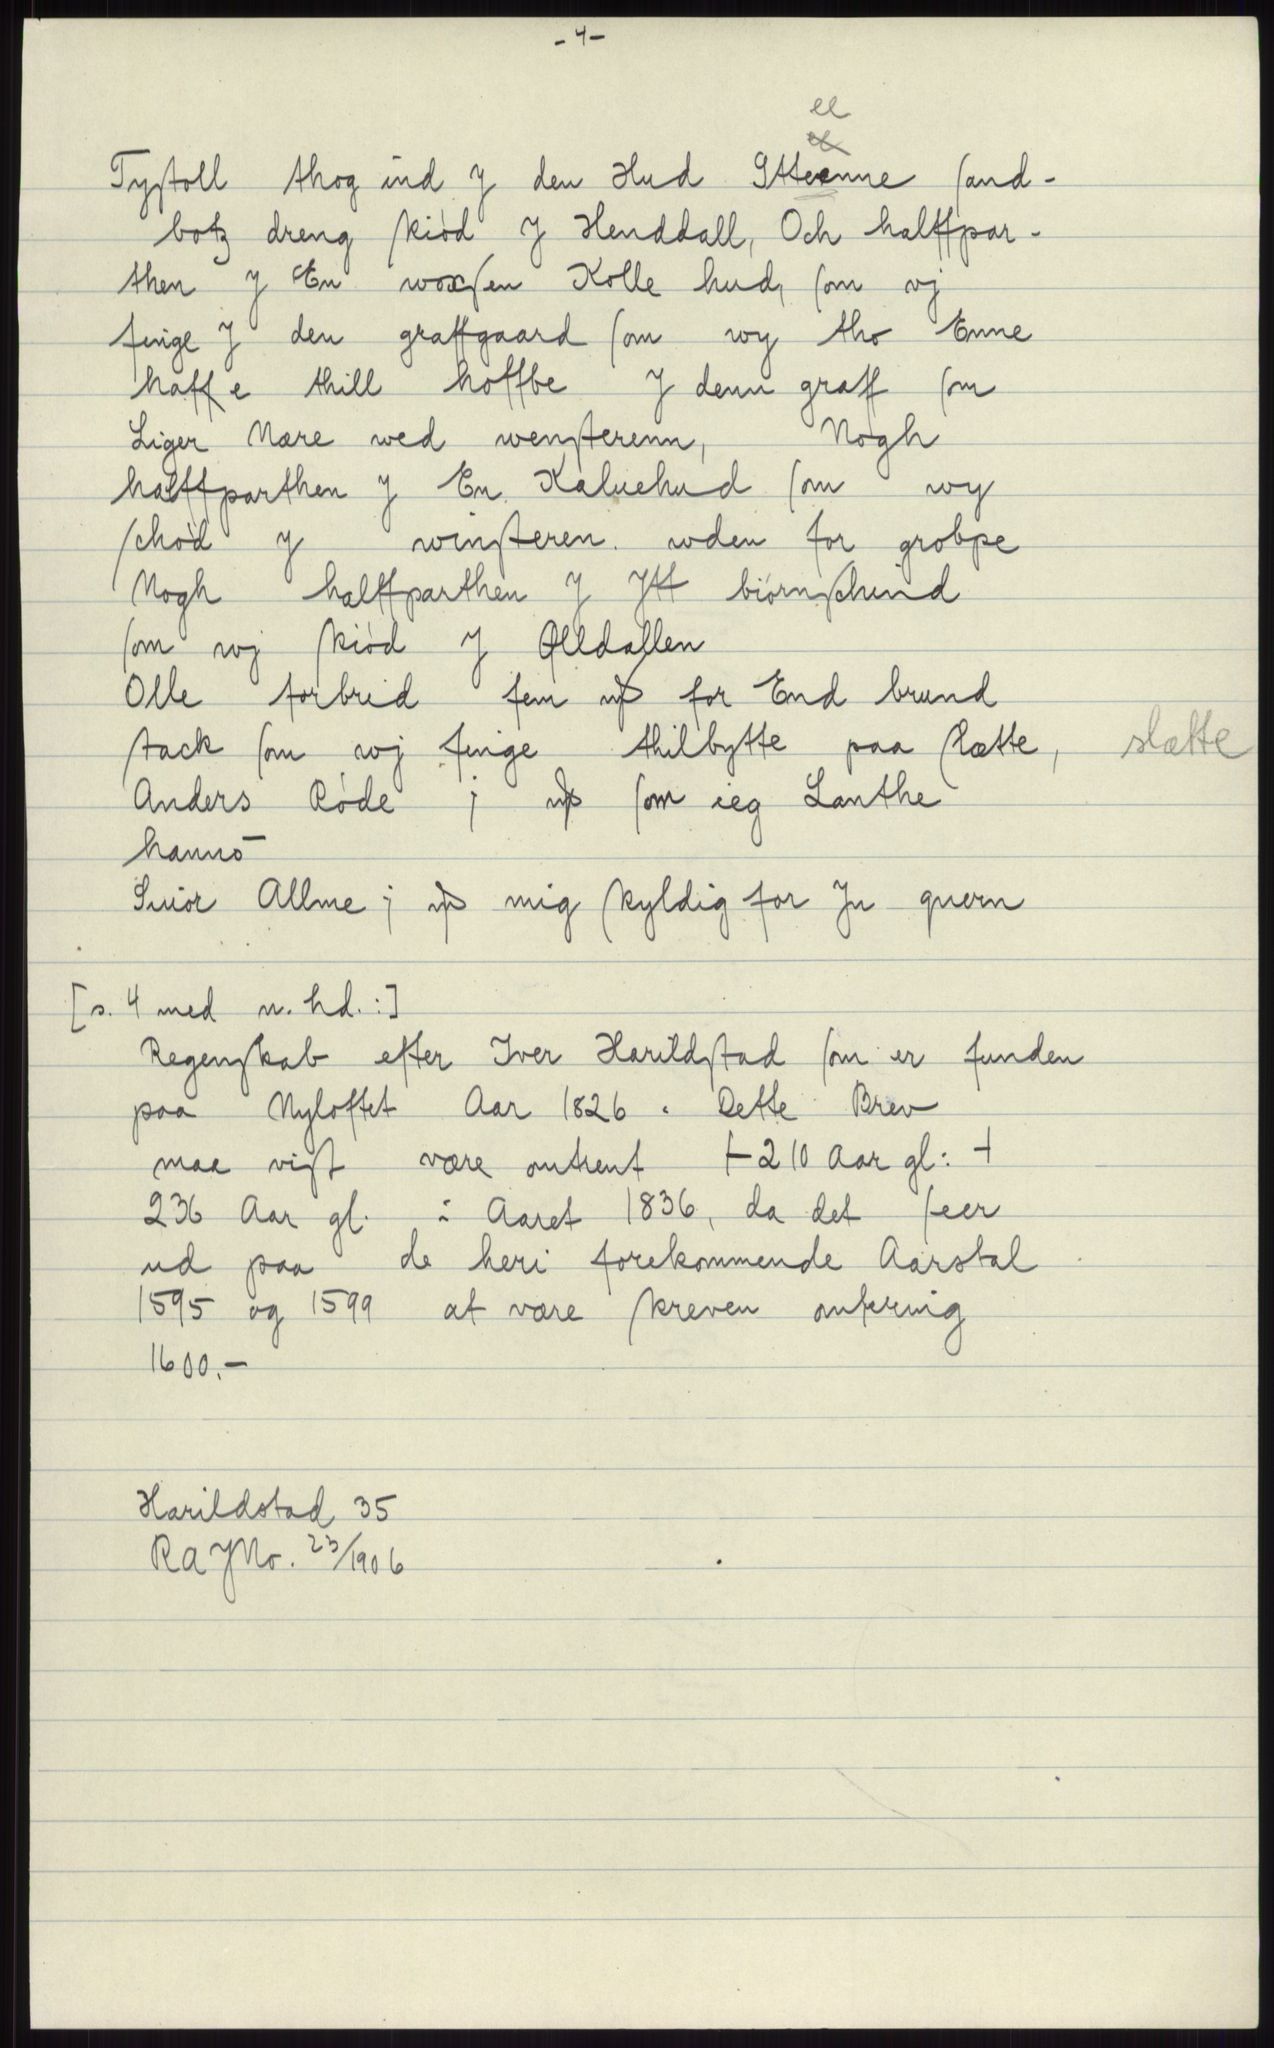 - 4 -
ee
Tyſtoll thog ind J den Hud Stteenne ſand-
botz dreng ſkiød J Henddall, Och halffpar-
then J En woxſen Kolle hud, ſom vj
finge J den graffgaard ſom wy tho Enne
haffe thill hoffbe J denn graff ſom
Liger Nære wed wenſterenn, Nogh
halffparthen J En Kaluehud ſom wy
ſchød J winſteren. uden for grobpe
Nogh halffparthen J Jtt biørnſchind
ſom wj ſkiød J Ølldallen
Olle forbrid fem for End brund
ſtack ſom wj finge thilbytte paa ſlette, slette
Anders Røde j ſom ieg Lanthe
hannō
Siuor Allme j mig ſkyldig for Ju quern
[s. 4 med n. hd.:]
Regenſkab efter Iver Harildſtad ſom er funden
paa Nyloftet Aar 1826. Dette Brev
maa viſt være omtrent ⊢ 210 Aar gl: ⊣
236 Aar gl. i Aaret 1836, da det ſeer
ud paa de heri forekommende Aarstal
1595 og 1599 at være ſkreven omkring
1600.-
Harildstad 35
RA JNo. 23/1906